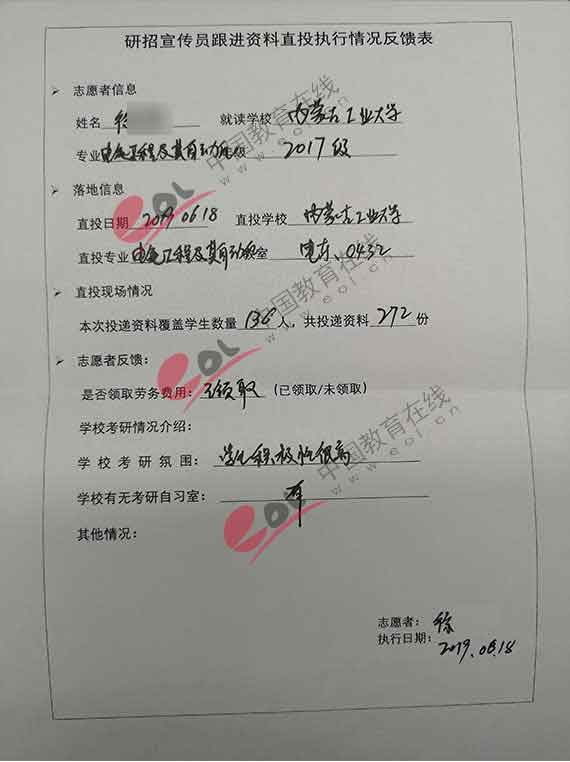 研招宣传员跟进资料直投执行情况反馈表
➢ 志愿者信息
姓名 徐 就读学校 内蒙古工业大学
专业 电气工程及其自动化 年级 2017级
➢ 落地信息
直投日期 2019 06 18 直投学校 内蒙古工业大学
直投专业 电气工程及其自动化 室 0432
➢ 直投现场情况
本次投递资料覆盖学生数量 136 人，共投递资料 272 份
➢ 志愿者反馈：
是否领取劳务费用：已领取 (已领取/未领取)
学校考研情况介绍：
学校考研氛围：学生积极性很高
学校有无考研自习室：有
其他情况：
志愿者：徐
执行日期：2019.06.18
eol 中国教育在线
www.eol.cn
eol 中国教育在线
www.eol.cn
eol 中国教育在线
www.eol.cn